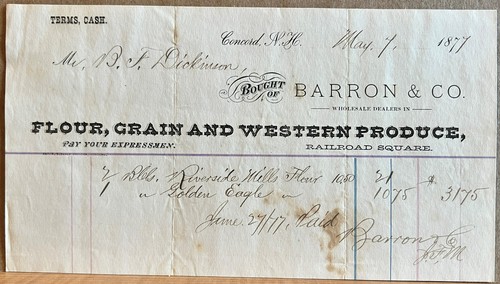 TERMS, CASH.
Concord, N.H. May. 7, 1877
Mr. B. F. Dickinson,
BOUGHT OF BARRON & CO.
WHOLESALE DEALERS IN
FLOUR, GRAIN AND WESTERN PRODUCE,
PAY YOUR EXPRESSMEN. RAILROAD SQUARE.
2 Bbls. Riverside Mills Flour 1050 21
1 " Golden Eagle " 1075 $ 3175
June 27/77, Paid
Barron & Co